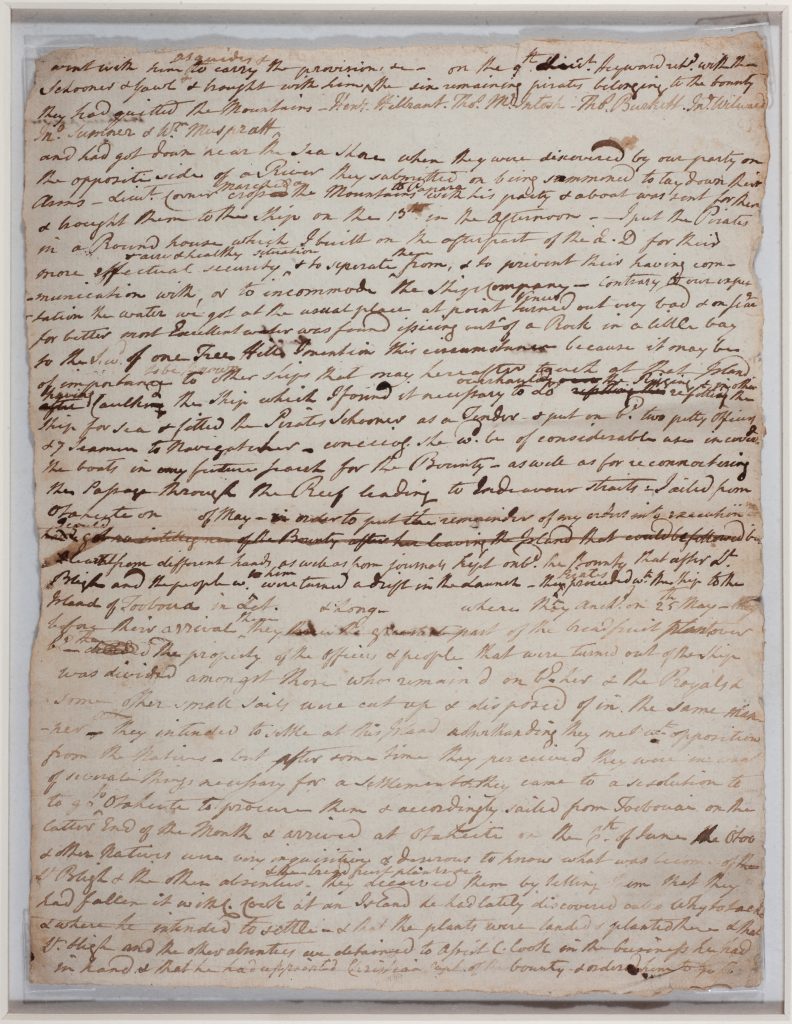 as guides &
went with him to carry the provision, &c - on the 9th Lieut. Heyward retd. with the
Schooner & Yawl & brought with him the six remaining pirates belonging to the bounty
they had quitted the Mountains - Heny. Hillbrant. Thos. McIntosh - Thos. Burkett. Jno. Milward
Jno. Sumner & Wm. Muspratt
and had got down near the Sea Shore when they were discovered by our party on
the opposite side of a River they submitted on being summoned to lay down their
Arms - Lieut. Corner marched across the Mountains with his party & about was sent for them
& brought them to the Ship on the 13th in the Afternoon - I put the Pirates
in a Round house which I built on the afterpart of the Q. D for their
& airy & healthy situation
more effectual security & to seperate them from, & to prevent their having com-
-munication with, or to incommode the Ships company - Contrary to our expec
tation the water we got at the usual place at point Venus turned out very bad & on
for better most Excellent water was found issuing out of a Rock in a little bay
to the S.W. of one Tree Hill I mention this circumstance because it may be
of importance to be known to other ships that may hereafter touch at that Island
Caulking the Ship which I found it necessary to do overhauling refitting the
Ship for Sea & fitted the Pirates Schooner as a Tender & put on bd. two petty Officers
& 7 Seamen to Navigate her - conceiving she wd. be of considerable use in covering
the boats in my future search for the Bounty - as well as for reconnoitering
the Passage through the Reef leading to Endeavour straits & Sailed from
Otaheite on of May - in order to put the remainder of my orders into execution
of the Bounty after her leaving the Island that could be followed
from different hands, as well as from journals kept on bd. the Bounty that after Lt.
Bligh and the people wth. him were turned a drift in the Launch - the Pirates proceeded wth. the Ship to the
Island of Toobouai in Lat. & Long. where they Anchd. on 25th May -
before their arrival they threw the greatest part of the breadfruit plants over
bd. & the property of the Officers & people that were turned out of the Ship
was divided amongst those who remain'd on bd. her & the Royals &
some other small sails were cut up & disposed of in the same man
-ner - They intended to settle at this Island notwithstanding they met wth. opposition
from the Natives - but after some time they perceived they were in want
of several things necessary for a settlement & they came to a resolution to
to go to Otaheite to procure them & accordingly sailed from Toobouai on the
latter End of the Month & arrived at Otaheite on the 6th of June the Otoo
& other Natives were very inquisitive & desirous to know what was become of the
& the bread fruit plants &c
Lt. Bligh & the other absentees. they deceived them by telling them that they
had fallen in with C. Cook at an Island he had lately discovered called Whytootackee
& where he intended to settle - & that the plants were landed & planted there & that
Lt. Bligh and the other absentees were detained to assist C. Cook in the business he had
in hand & that he had appointed Christian Capt. of the bounty & ordered him to